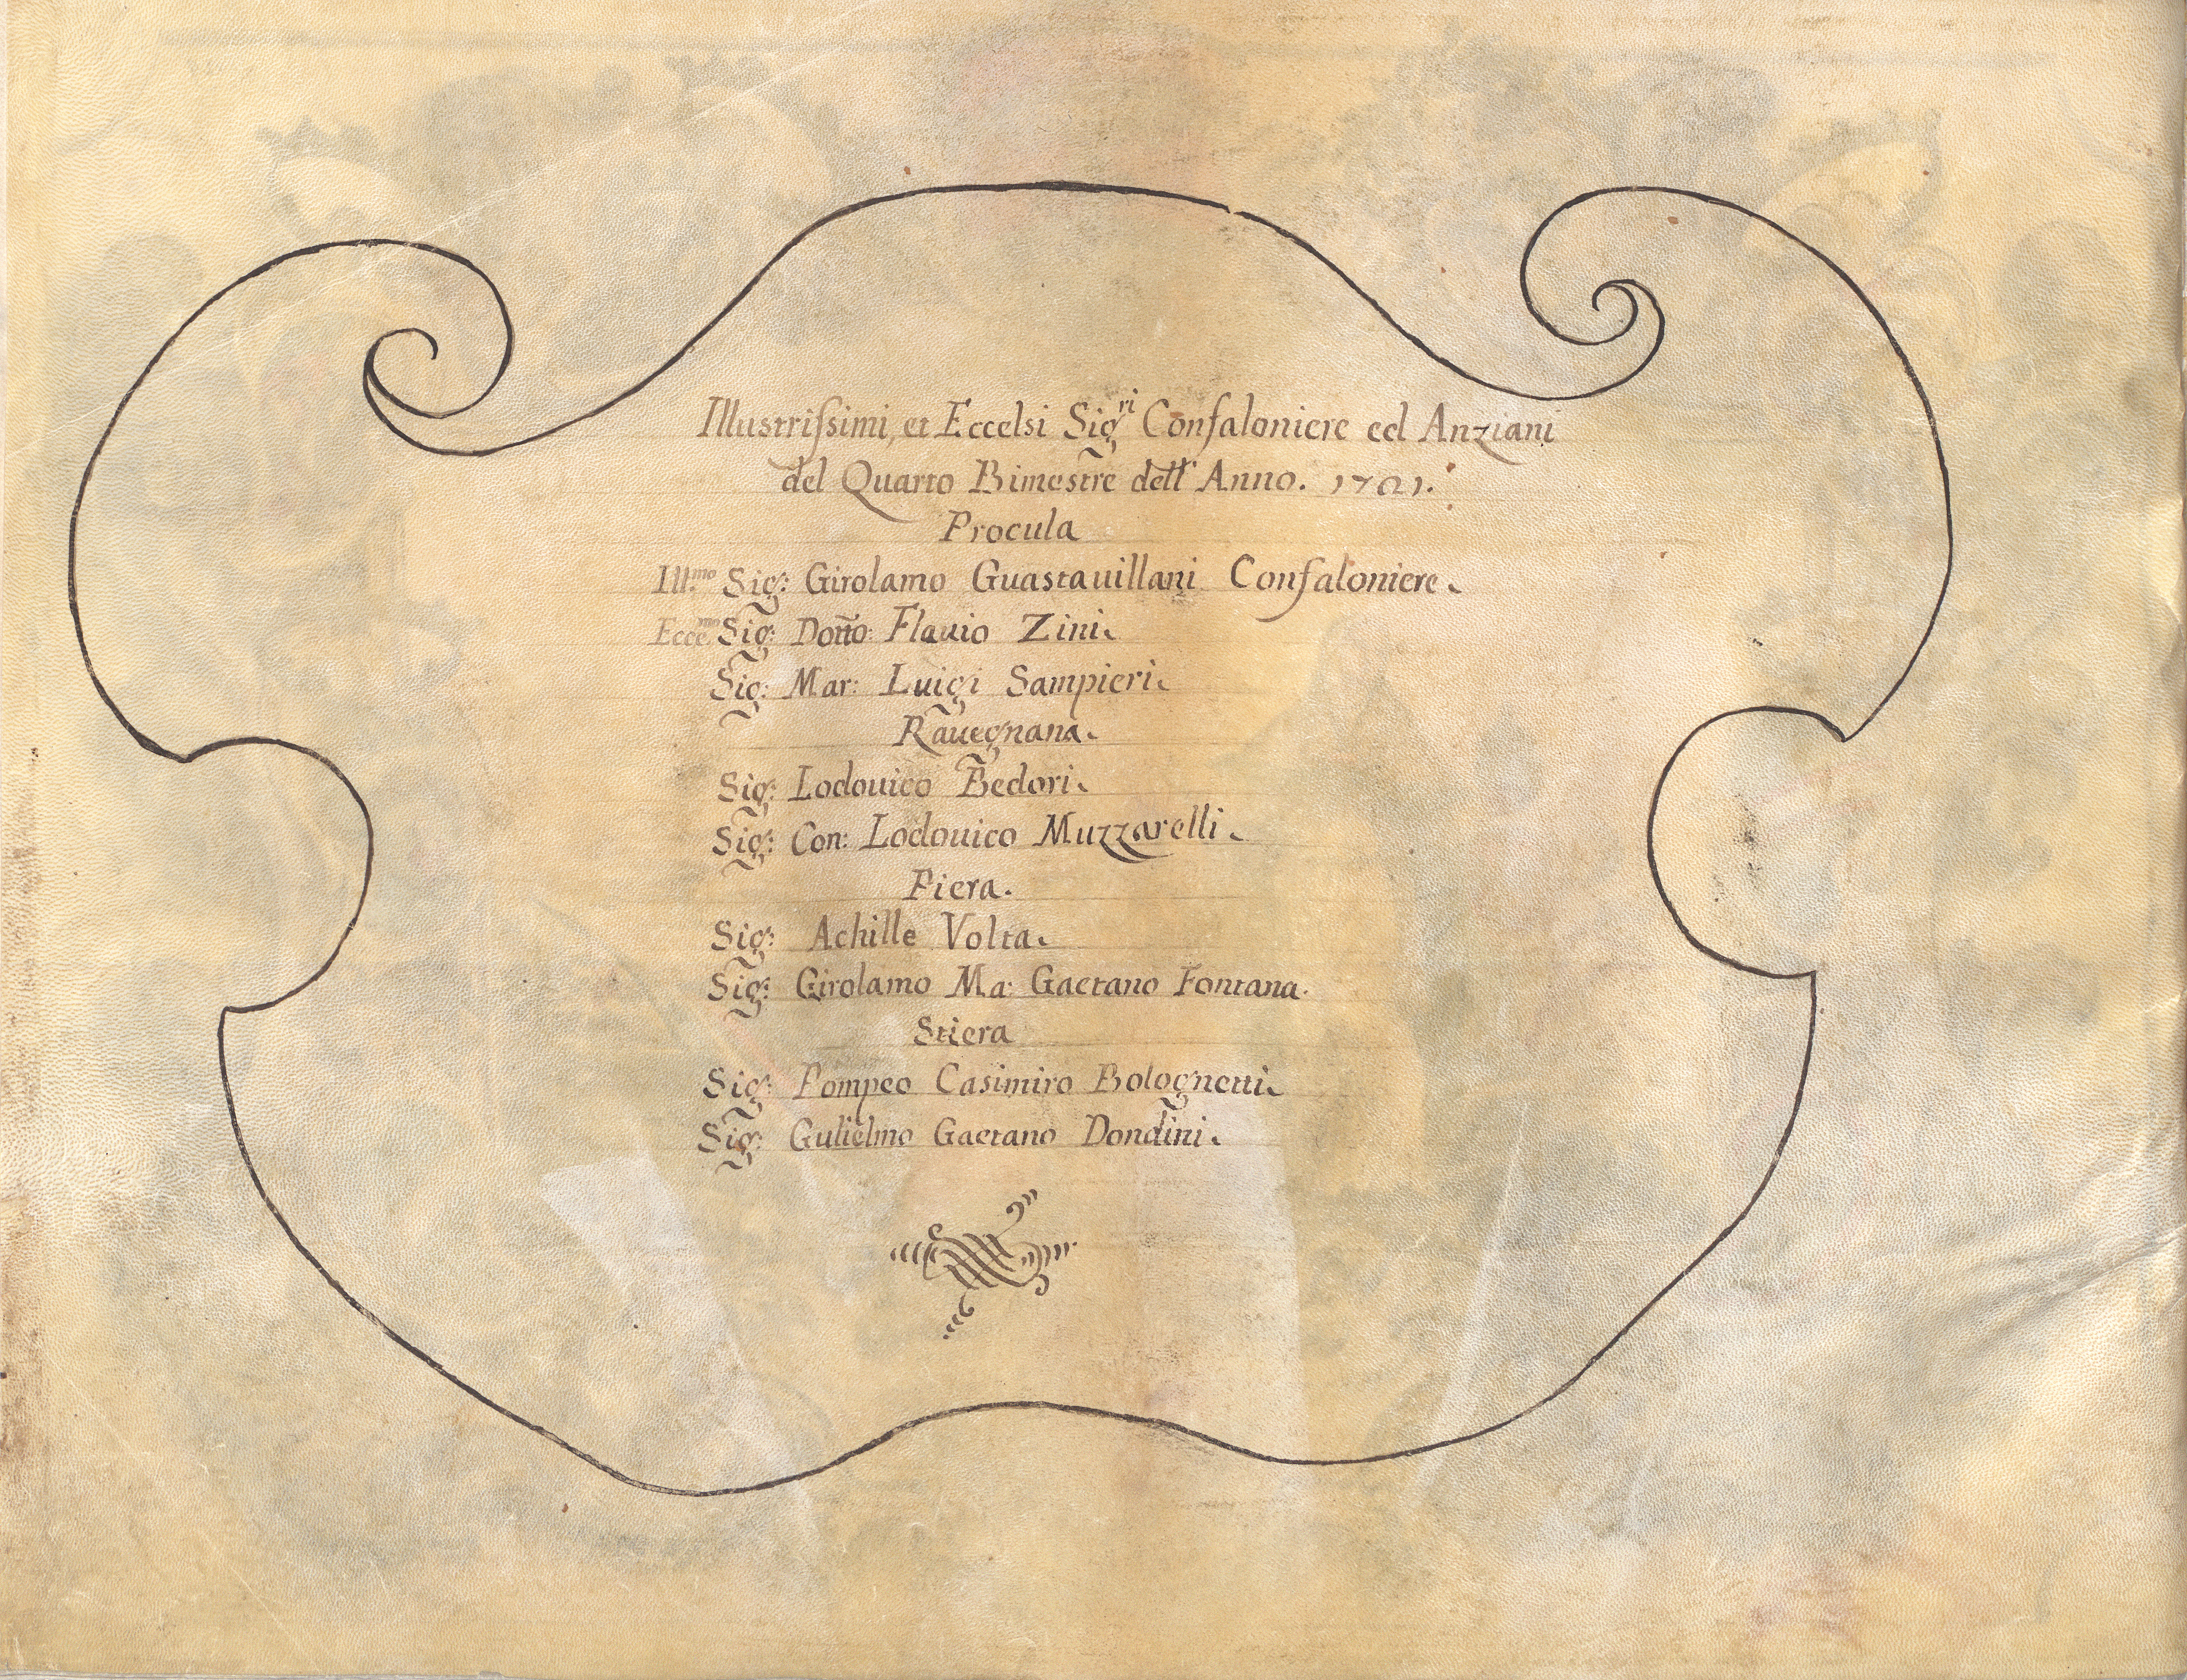 Illustrissimi, et Eccelsi Sig.ri Confaloniere ed Anziani
del Quarto Bimestre dell' Anno. 1701.
Procula
Ill.mo Sig: Girolamo Guastauillani Confaloniere.
Ecce.mo Sig: Dotto: Flauio Zini.
Sig: Mar: Luigi Sampieri.
Rauegnana.
Sig: Lodouico Bedori.
Sig: Con: Lodouico Muzzarelli.
Piera.
Sig: Achille Volta.
Sig: Girolamo Ma: Gaetano Fontana.
Stiera
Sig: Pompeo Casimiro Bolognetti.
Sig: Gulielmo Gaetano Dondini.